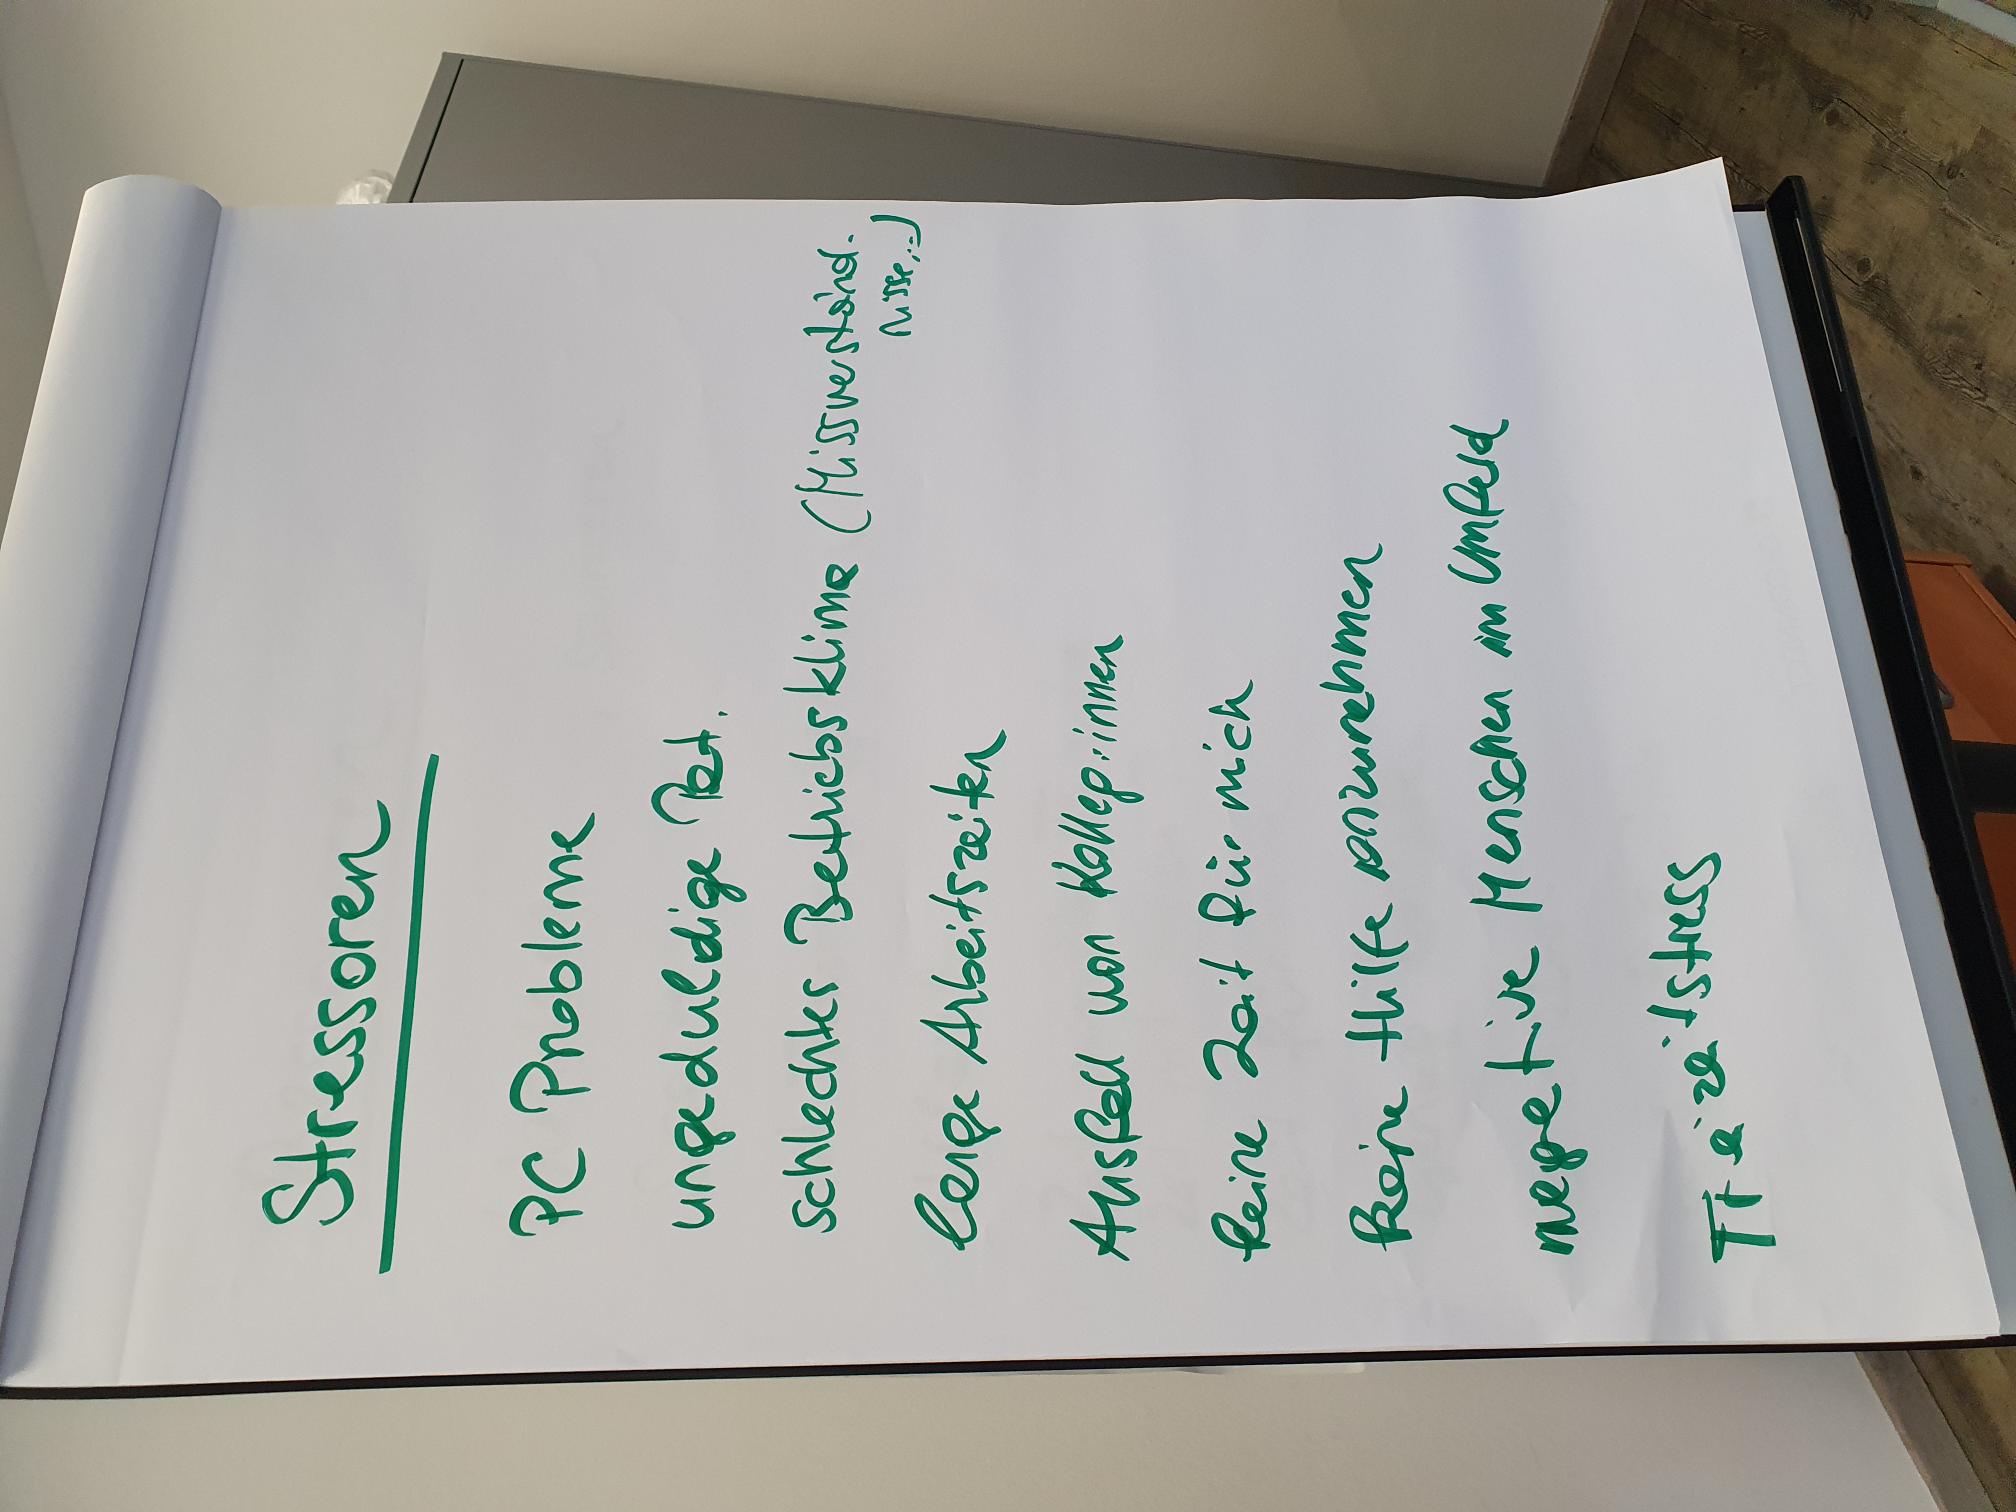 Stressoren
PC Probleme
ungeduldige Pat.
schlechtes Betriebsklima (Missverständ.
nisse,:-)
lange Arbeitszeiten
Ausfall von Kolleg:innen
keine Zeit für mich
keine Hilfe anzunehmen
negative Menschen im Umfeld